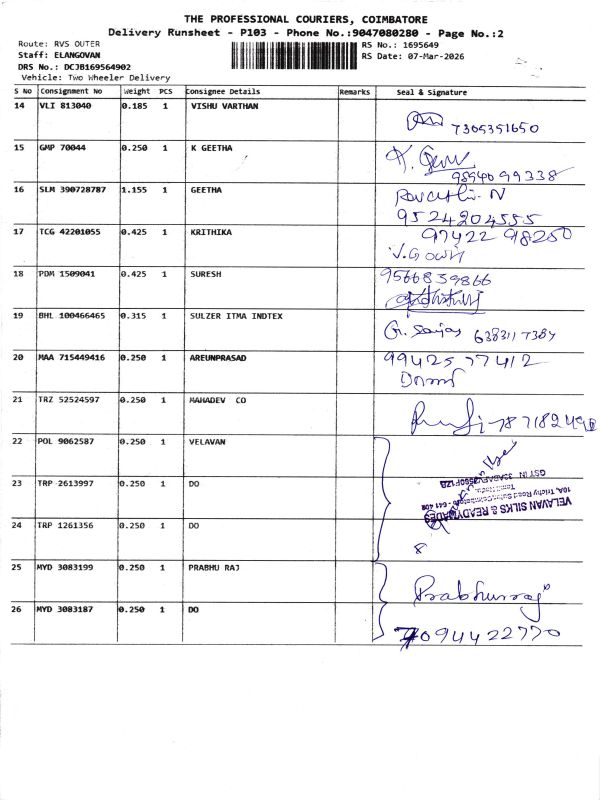 THE PROFESSIONAL COURIERS, COIMBATORE
Delivery Runsheet - P103 - Phone No.:9047080280 - Page No.:2
Route: RVS OUTER
RS No.: 1695649
Staff: ELANGOVAN
RS Date: 07-Mar-2026
DRS No.: DCJB169564902
Vehicle: Two Wheeler Delivery
S No Consignment No Weight PCS Consignee Details Remarks Seal & Signature
14 VLI 813040 0.185 1 VISHU VARTHAN
7305351650
15 GMP 70044 0.250 1 K GEETHA
9894099338
16 SLM 390728787 1.155 1 GEETHA
Revathi. N
9524204555
17 TCG 42201055 0.425 1 KRITHIKA
97422 98250
V.Gowri
18 PDM 1509041 0.425 1 SURESH
9566839866
19 BHL 100466465 0.315 1 SULZER ITMA INDTEX
G. Sanjay 6383117387
20 MAA 715449416 0.250 1 AREUNPRASAD
9942577412
21 TRZ 52524597 0.250 1 MAHADEV CO
22 POL 9062587 0.250 1 VELAVAN
23 TRP 2613997 0.250 1 DO
24 TRP 1261356 0.250 1 DO
VELAVAN SILKS & READYMADES
10A, Trichy Road, Sulur, Coimbatore - 641 402
Tamil Nadu
8
25 MYD 3083199 0.250 1 PRABHU RAJ
Prabhurraj
26 MYD 3083187 0.250 1 DO
7094422770